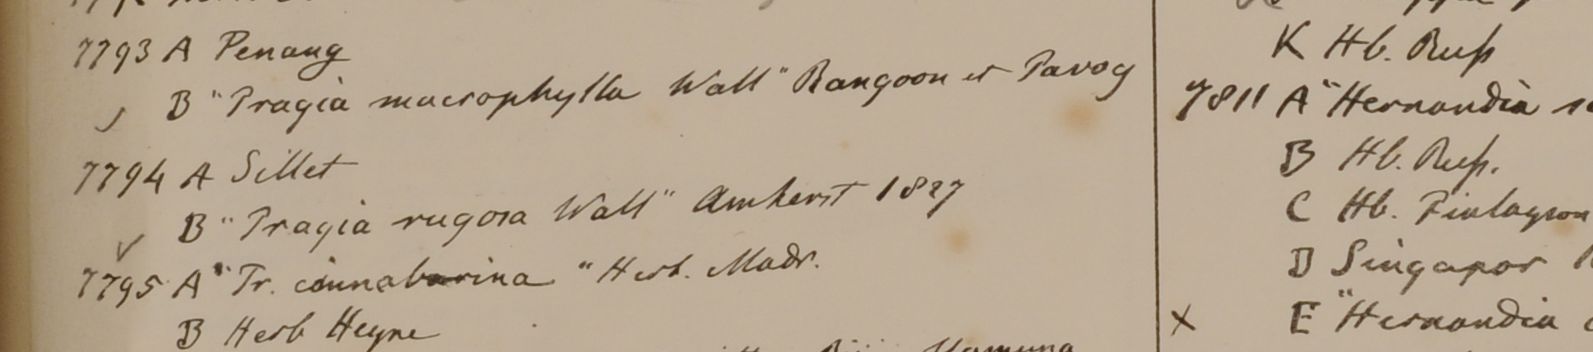 7793 A Penang
B "Tragia macrophylla Wall" Rangoon et Tavoy
7794 A Sillet
B "Tragia rugosa Wall" Amherst 1827
7795 A "Tr. cannabarina" Herb. Madr.
B Herb Heyne
K Hb. Russ
7811 A "Hernandia
B Hb. Russ.
C Hb. Finlayson
D Singapor
x E "Hernandia